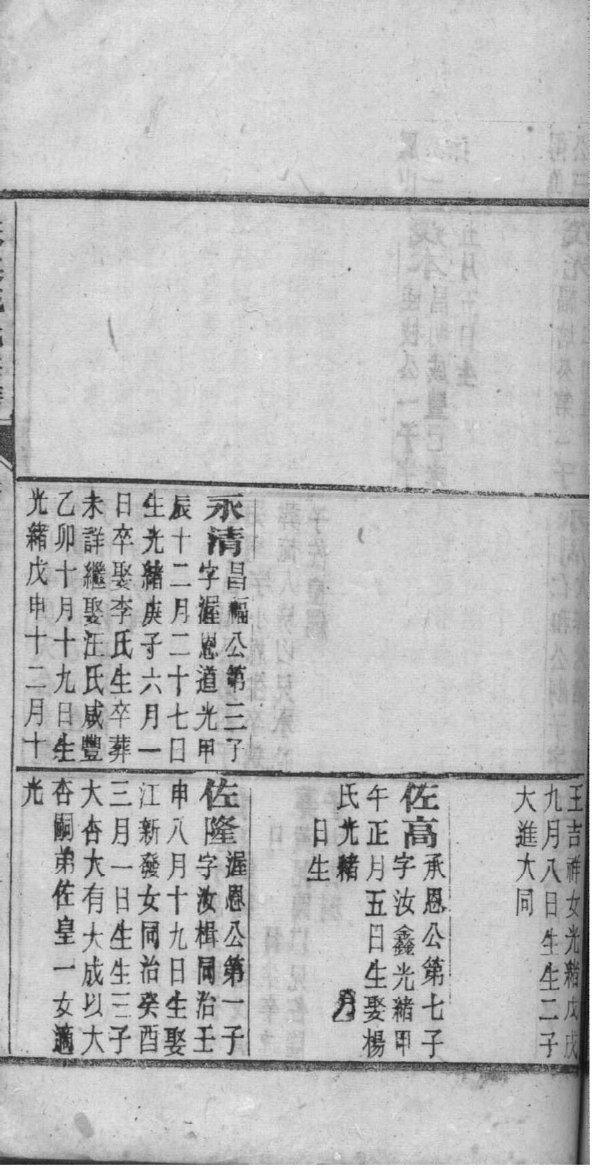 永清
昌福公第三子
字渥恩道光甲
辰十二月二十七日
生光緒庚子六月一
日卒娶李氏生卒葬
未詳繼娶汪氏咸豐
乙卯十月十九日生
光緒戊申十二月十
王吉祥女光緒戊戌
九月八日生生二子
大進大同
佐高
承恩公第七子
字汝鑫光緒甲
午正月五日生娶楊
氏光緒 月
日生
佐隆
渥恩公第一子
字汝楫同治壬
申八月十九日生娶
江新發女同治癸酉
三月一日生生三子
大杏大有大成以大
杏嗣弟佐皇一女適
光